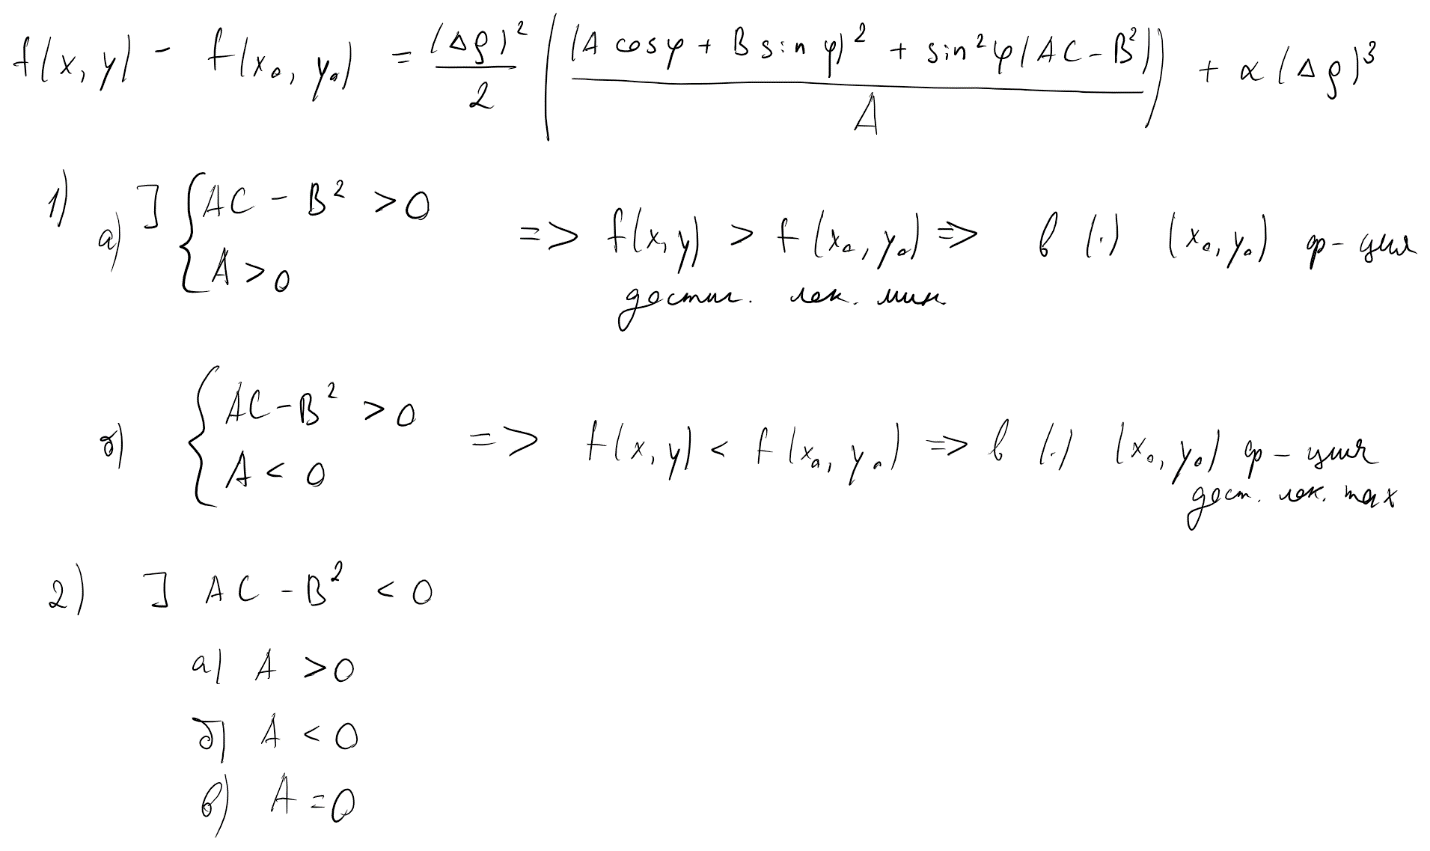 f(x, y) - f(x₀, y₀) = (Δρ)²/2 ( ((A cosφ + B sin φ)² + sin²φ(AC - B²))/A ) + α(Δρ)³
1) а) ] { AC - B² > 0
A > 0 => f(x, y) > f(x₀, y₀) => в (·) (x₀, y₀) ф-ция
достиг. лок. мин.
б) { AC - B² > 0
A < 0 => f(x, y) < f(x₀, y₀) => в (·) (x₀, y₀) ф-ция
дост. лок. max
2) ] AC - B² < 0
а) A > 0
б) A < 0
в) A = 0